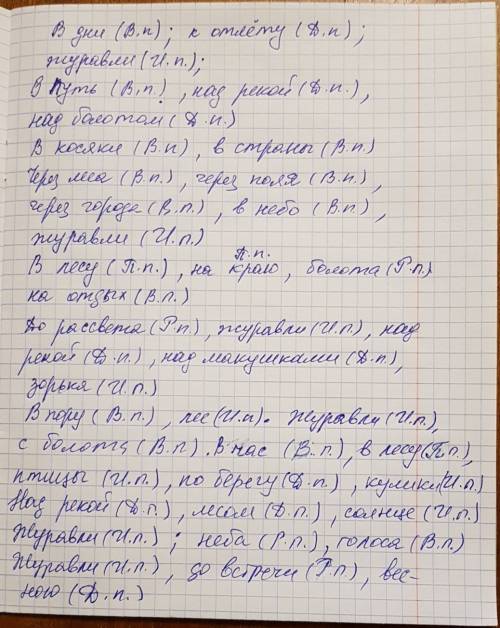 В дни (В.п); к отлёту (Д.п);
журавли (И.п.);
В путь (В.п.), над рекой (Д.п.),
над болотом (Д.п.)
В косяки (В.п), в страны (В.п.)
Через леса (В.п.), через поля (В.п.),
через города (В.п.), в небо (В.п.),
журавли (И.п.)
П.п.
В лесу (П.п.), на краю, болота (Р.п.)
на отдых (В.п.)
До рассвета (Р.п), журавли (И.п), над
рекой (Д.п.), над макушками (Д.п),
зорька (И.п.)
В пору (В.п.), лес (И.п). Журавли (И.п),
с болота (В.п). В час (В.п.), в лесу (П.п),
птицы (И.п.), по берегу (Д.п.), кулики (И.п)
Над рекой (Д.п.), лесом (Д.п.), солнце (И.п.)
Журавли (И.п.); неба (Р.п.), голоса (В.п.)
Журавли (И.п.), до встречи (Р.п), вес-
ною (Д.п.)